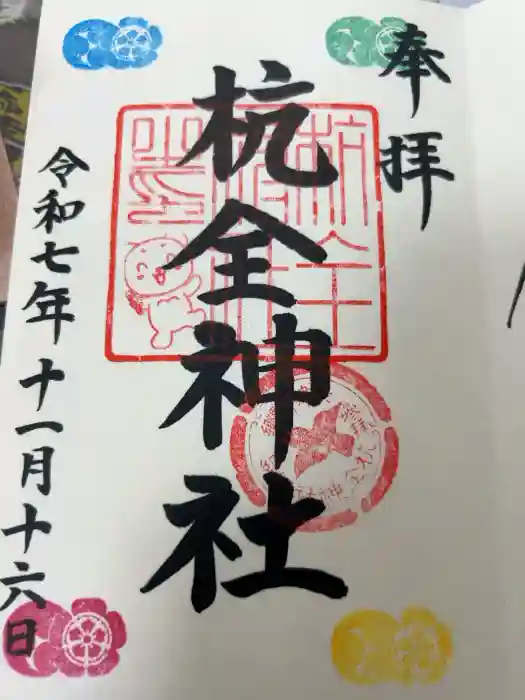 奉拝
杭全神社
令和七年十一月十六日
杭全